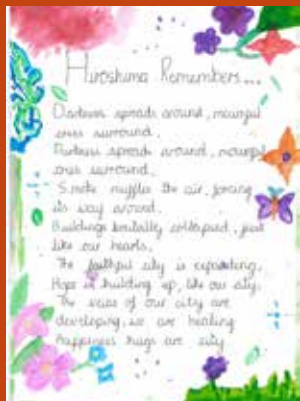 Hiroshima Remembers...
Darkness spreads around, mournful
cries surround.
Darkness spreads around, mournful
cries surround.
Smoke muffles the air, forcing
its way around.
Buildings brutally collapsed, just
like our hearts.
The faithful city is expanding,
Hope is building up, like our city.
The of our city are
developing, we are healing
happiness hugs are city